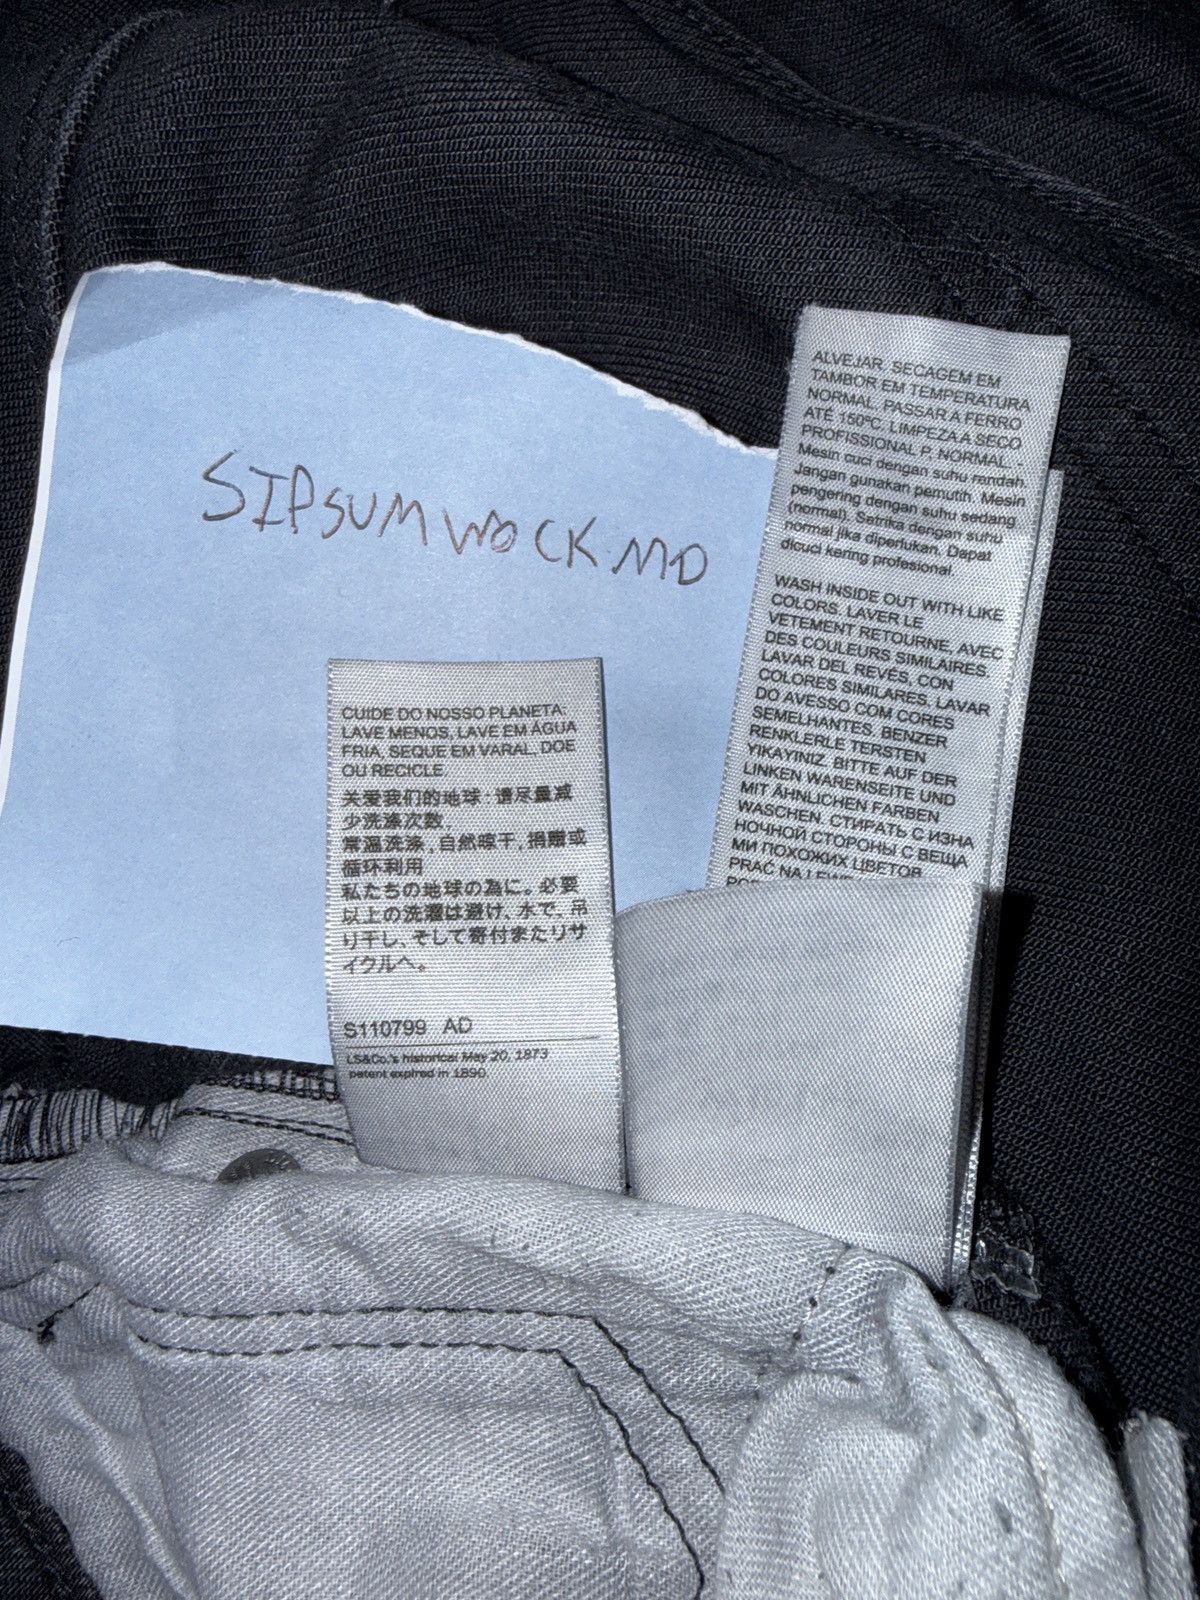 SIPSUMWOCK.MD
ALVEJAR. SECAGEM EM
TAMBOR EM TEMPERATURA
NORMAL. PASSAR A FERRO
ATÉ 150ºC. LIMPEZA A SECO
PROFISSIONAL P. NORMAL. -
Mesin cuci dengan suhu randah.
Jangan gunakan pemutih. Mesin
pengering dengan suhu sedang
(normal). Setrika dengan suhu
normal jika diperlukan. Dapat
dicuci kering profesional.
WASH INSIDE OUT WITH LIKE
COLORS. LAVER LE
VETEMENT RETOURNE, AVEC
DES COULEURS SIMILAIRES.
LAVAR DEL REVES, CON
COLORES SIMILARES. LAVAR
DO AVESSO COM CORES
SEMELHANTES. BENZER
RENKLERLE TERSTEN
YIKAYINIZ. BITTE AUF DER
LINKEN WARENSEITE UND
MIT ÄHNLICHEN FARBEN
WASCHEN. СТИРАТЬ С ИЗНА
НОЧНОЙ СТОРОНЫ С ВЕЩА
МИ ПОХОЖИХ ЦВЕТОВ.
PRAĆ NA
CUIDE DO NOSSO PLANETA:
LAVE MENOS, LAVE EM ÁGUA
FRIA, SEQUE EM VARAL, DOE
OU RECICLE.
关爱我们的地球：请尽量减
少洗涤次数，
常温洗涤，自然晾干，捐赠或
循环利用
私たちの地球の為に。必要
以上の洗濯は避け、水で、吊
り干し、そして寄付またリサ
イクルへ。
S110799 AD
LS&Co.'s historical May 20, 1873
patent expired in 1890.